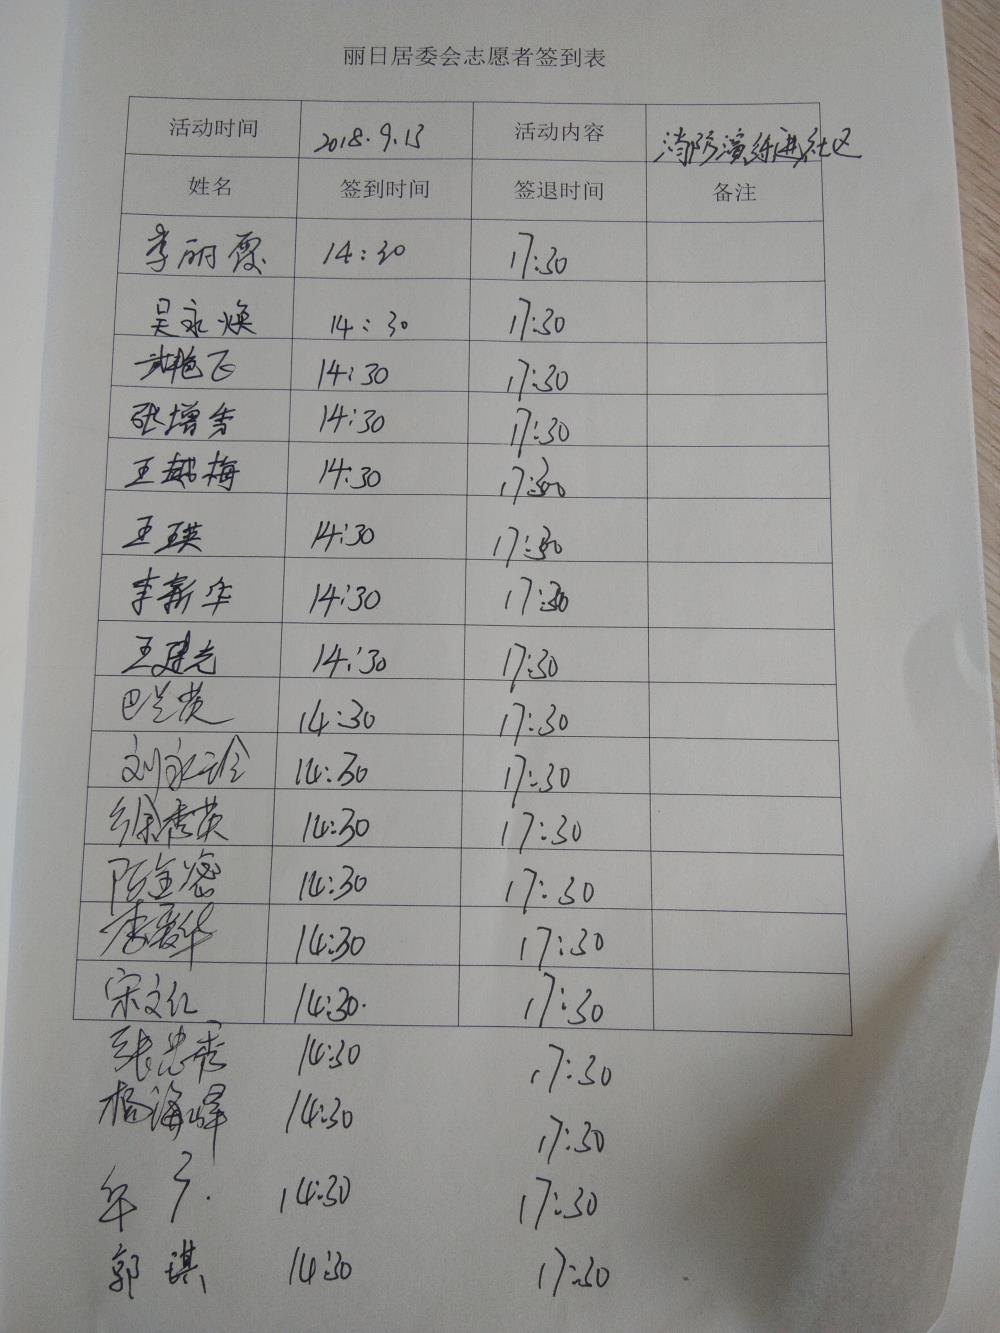 丽日居委会志愿者签到表
活动时间 2018.9.13 活动内容 消防演练进社区
姓名 签到时间 签退时间 备注
李丽霞 14:30 17:30
吴永焕 14:30 17:30
艳飞 14:30 17:30
张增香 14:30 17:30
王越梅 14:30 17:30
王英 14:30 17:30
李新华 14:30 17:30
王建光 14:30 17:30
巴兰英 14:30 17:30
刘永玲 14:30 17:30
徐秀英 14:30 17:30
陈金 14:30 17:30
李爱华 14:30 17:30
宋文红 14:30 17:30
张忠秀 14:30 17:30
杨海峰 14:30 17:30
14:30 17:30
郭琪 14:30 17:30